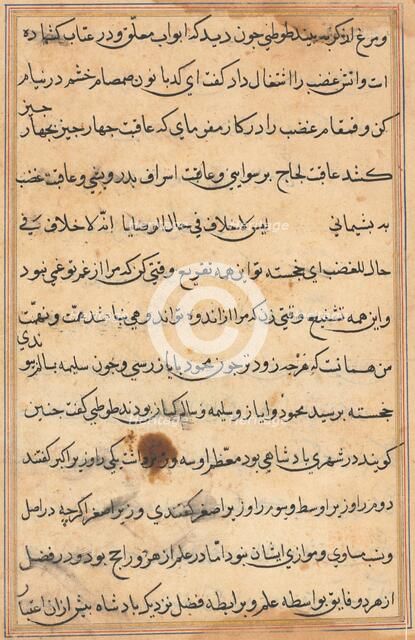 و مرغ از گوشه بپرید طوطی چون دید که ابواب معلق و در عتاب کشاده
است و آتش غضب را اشتعال دارد گفت ای کدبانو صمصام خشم در نیام
کن و قمقام غضب را در کار مفرمای که عاقبت چهار چیز بچهار چیز
کشد عاقبت لجاج برسوایی و عاقبت اسراف بدرویشی و عاقبت غضب
به پشیمانی لیس الاخلاف فی حال الرضا یا انه لا خلاف فی
حالة الغضب ای خجسته تو این همه تقریع وقتی کن که مرا از عزم توعی بود
و این همه تشنیع وقتی زن که مرا از اندوه تو اندوهی نباشد نیت و نهمت
من همانست که هرچه زودتر چون محمود بایاز رسی و چون سلیمه بسالم
خجسته پرسید محمود و ایاز و سلیمه و سالم کیان بودند طوطی گفت چنین
گویند در شهری پادشاهی بود معظم او سه وزیر داشت یکی را وزیر اکبر گفتند
دوم را وزیر اوسط و سوم را وزیر اصغر گفتندی وزیر اصغر اگرچه در اصل
و نسب مساوی و موازی ایشان نبود اما در علم از هر دو راجح بود و در فضل
از هر دو فایق بواسطه علم و برابطه فضل نزدیک پادشاه بیش از ان اعتبار